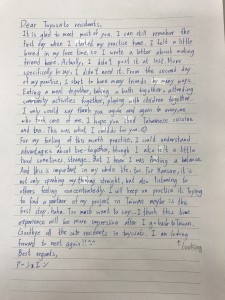 Dear Toyosato residents,
It is glad to meet most of you. I can still remember the
first day when I started my practice here. I felt a little
bored in my free time, so I wrote a letter about making
friend here. Actually, I didn't post it at last. More
specifically to say, I didn't need it. From the second day
of my practice, I start to have many friends by many ways.
Eating a meal together, taking a bath together, attending
community activities together, playing with children together.
I only would say thank you again and again to everyone
who took care of me. I hope you liked Taiwanese cuisine
and tea. This was what I could do for you
For my feeling of this month practice, I could understand
advantages about live-together, though I also felt a little
hard sometimes, strange, but I knew I was finding a balance.
And this is important in my whole life, too. For Ransom, it is
not only speaking my things straight, but also listening to
others feeling concentratedly. I will keep on practice it. Trying
to find a partner of my project in Taiwan maybe is the
first step, haha. Too much want to say... I think this time
experience will be more impressive after I go back to Taiwan.
Goodbye all the cute residents in toyosato. I am looking
forward to meet again!!
looking
Best regards,